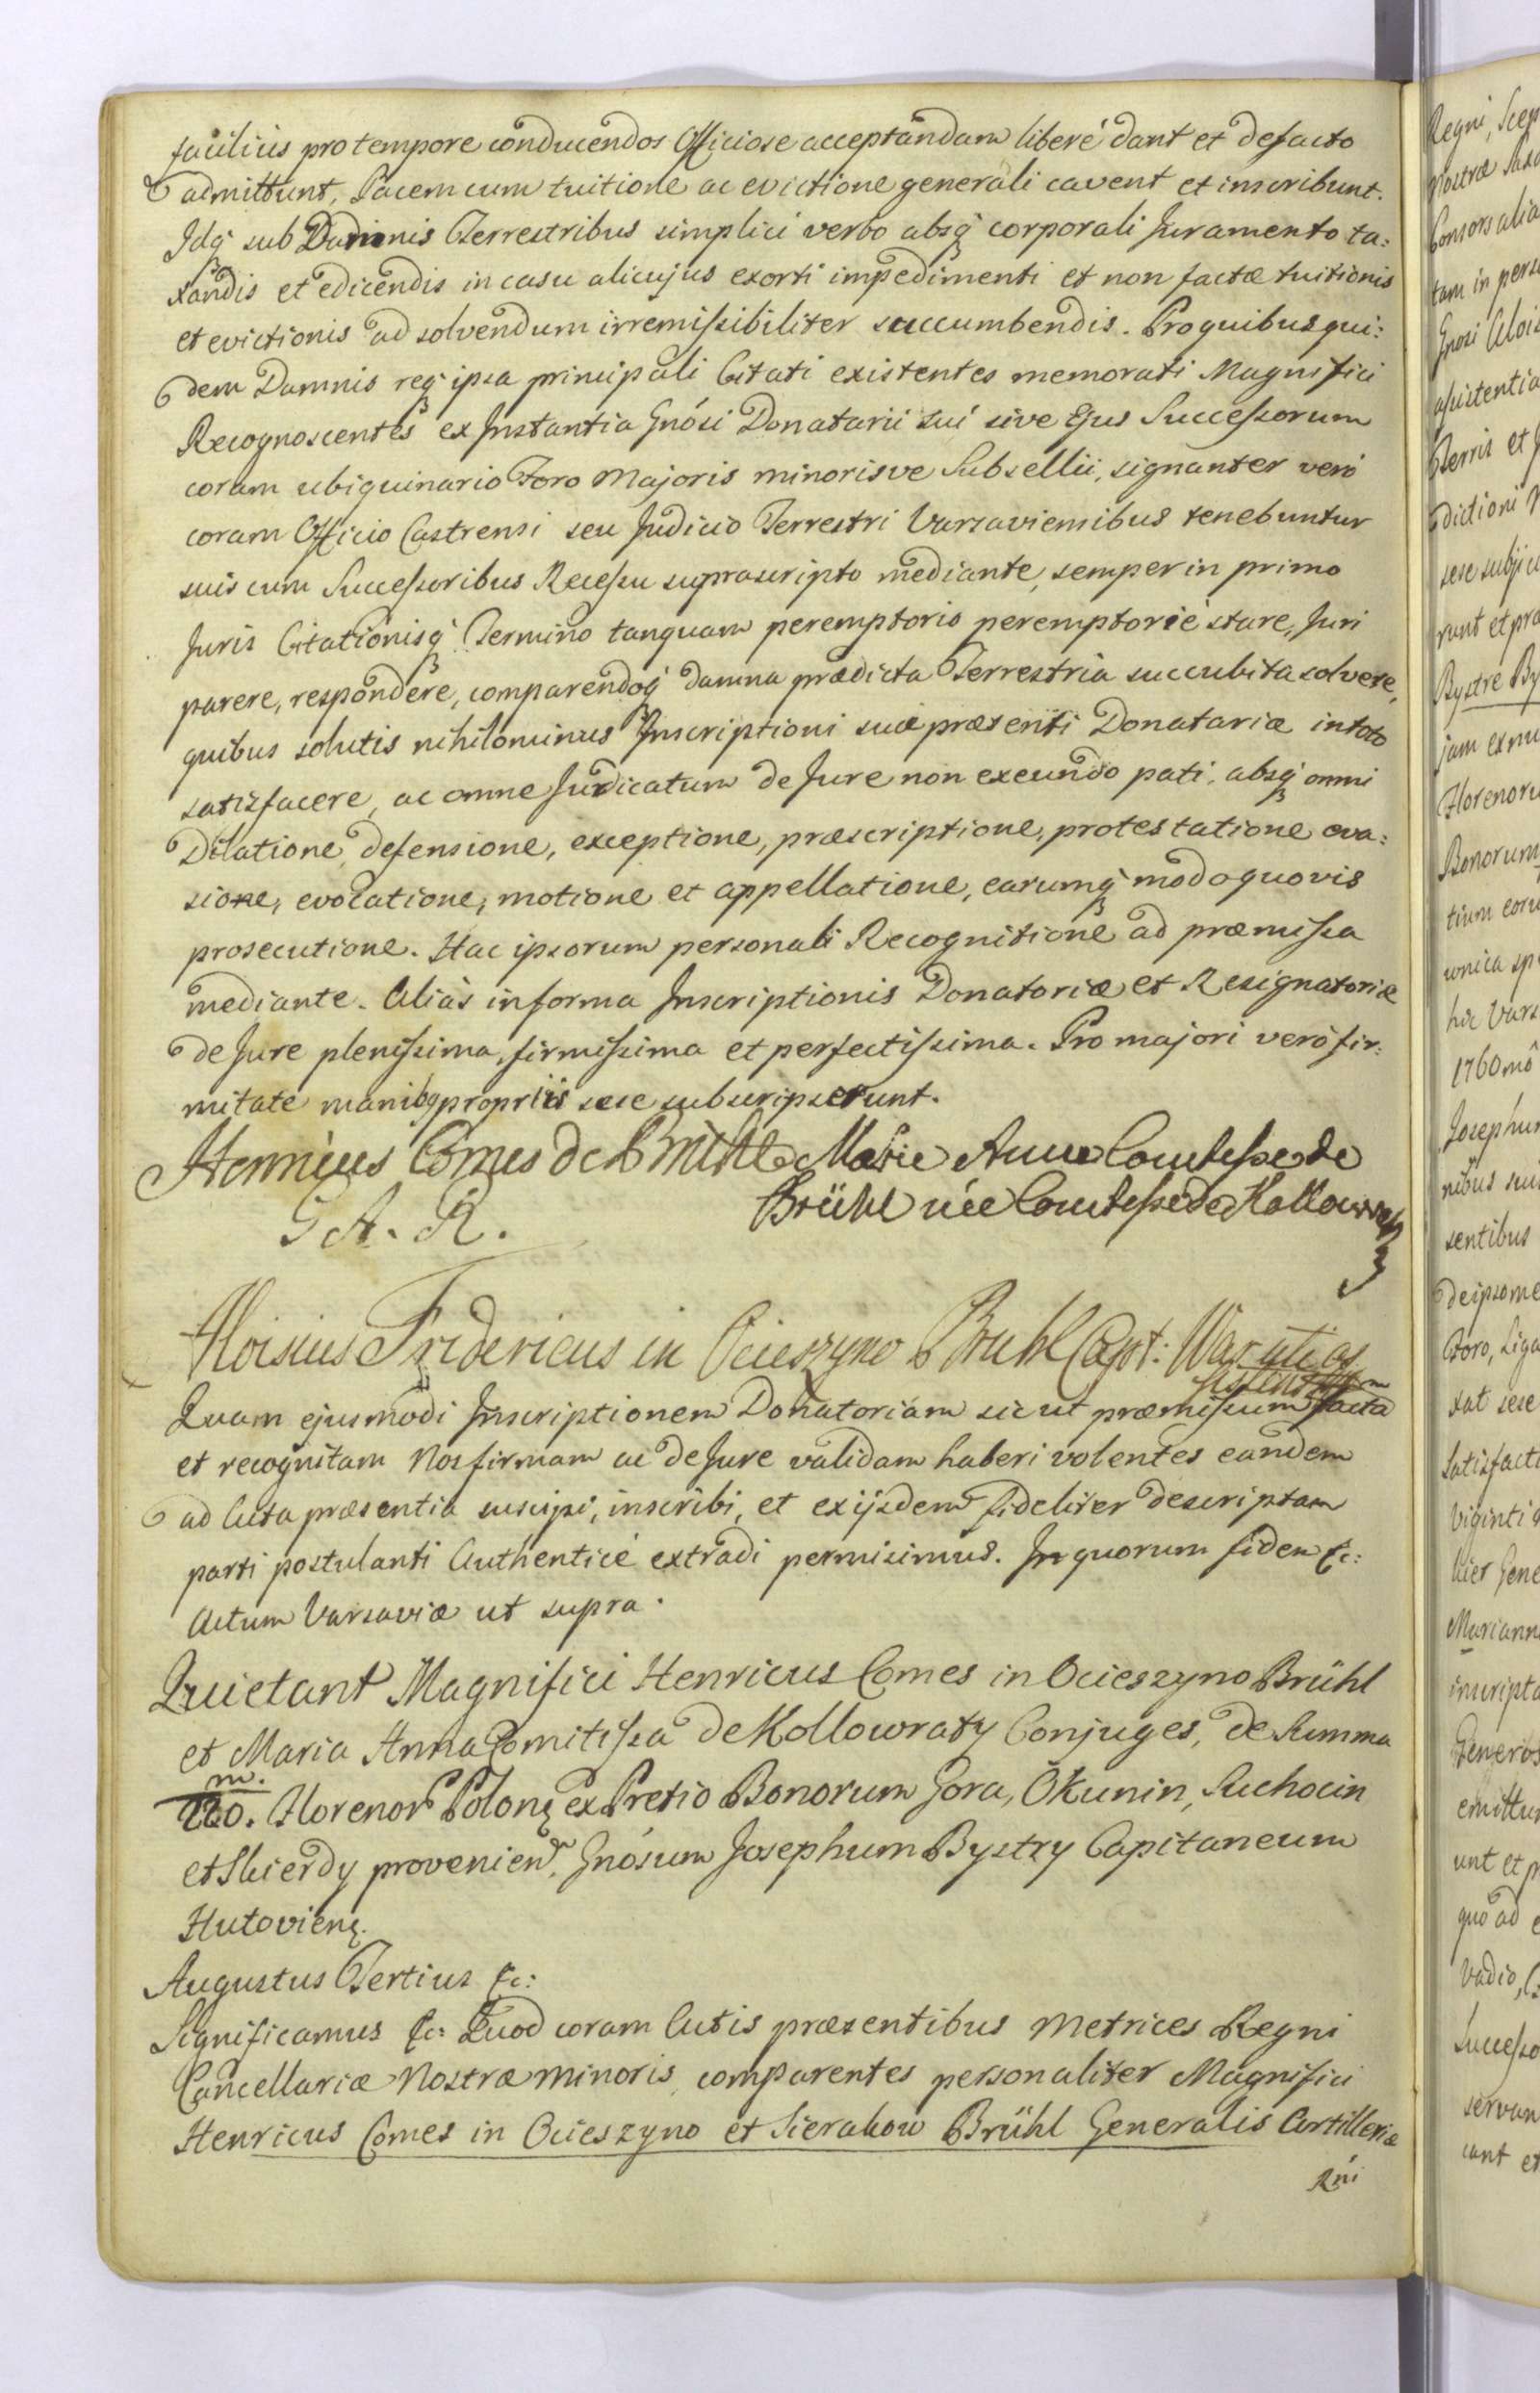 facilius pro tempore conducendos Officiose acceptandam liberé dant et defacto
admittunt, Pacem cum tuitione ac evictione generali cavent et inscribunt.
Idq sub Damnis Terrestribus simplici verbo absq corporali Juramento ta:
xandis et edicendis in casu alicujus exorti impedimenti et non factæ tuitionis
et evictionis ad solvendum irremissibiliter succumbendis. Pro quibus qui:
dem Damnis req ipsa principali Citati existentes memorati Magnifici
Recognoscentes ex Instantia Gnósi Donatarii sui sive Ejus Successorum
coram ubiquinario Foro Majoris minorisve Subsellii, signanter veró
coram Officio Castrensi seu Judicio Terrestri Varsaviensibus tenebuntur
suis cum Successoribus Recessu suprascripto mediante, semper in primo
Juris Citationisq Termino tanquam peremptorio peremptorié stare, Juri
parere, respondere, comparendoq damna prædicta Terrestria succubita solvere,
quibus solutis nihilominus Inscriptioni suæ præsenti Donatariæ in toto
satisfacere, ac omne Judicatum de Jure non exeundo pati, absq omni
Dilatione, defensione, exceptione, præscriptione, protestatione eva:
sione, evocatione, motione et appellatione, earumq modo quovis
prosecutione. Hac ipsorum personali Recognitione ad præmissa
mediante. Aliás in forma Inscriptionis Donatoriæ et Resignatoriæ
de Jure plenissima, firmissima et perfectissima. Pro majori veró fir:
mitate manibq propriis sese subscripserunt.
Henricus Comes de Brühl Marie Anne Comtesse de
G. A. R. Brühl née Comtesse de Kollowrath
Aloisius Fridericus in Ocieszyno Bruhl Capt: War: uti as
sistens mp
Quam ejusmodi Inscriptionem Donatoriam sicut præmissum facta
et recognitam Nos firmam ac de Jure validam haberi volentes eandem
ad Acta præsentia suscipi, inscribi, et exijsdem fideliter descriptam
parti postulanti Authenticé extradi permisimus. In quorum fidem &c:
Actum Varsaviæ ut supra.
Quietant Magnifici Henricus Comes in Ocieszyno Brühl
et Maria Anna Comitissa de Kollowraty Conjuges, de Summa
m.
220. Florenor Polonę ex Pretio Bonorum Gora, Okunin, Suchocin
et Skierdy provenien, Gnósum Josephum Bystry Capitaneum
Hutovienę.
Augustus Tertius &c:
Significamus &c: Quod coram Actis præsentibus Metrices Regni
Cancellariæ Nostræ Minoris comparentes personaliter Magnifici
Henricus Comes in Ocieszyno et Sierakow Brühl Generalis Artilleriæ
Rńi